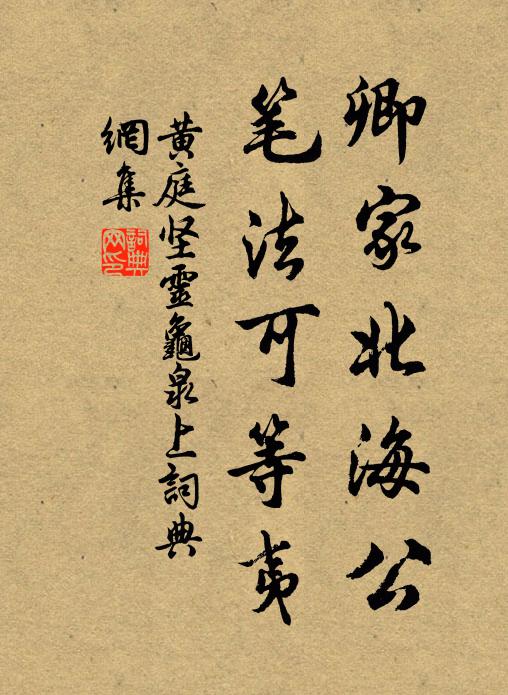 卿家北海公
笔法可等夷
黄庭坚靈龜泉上詞典
網集
詞典网印